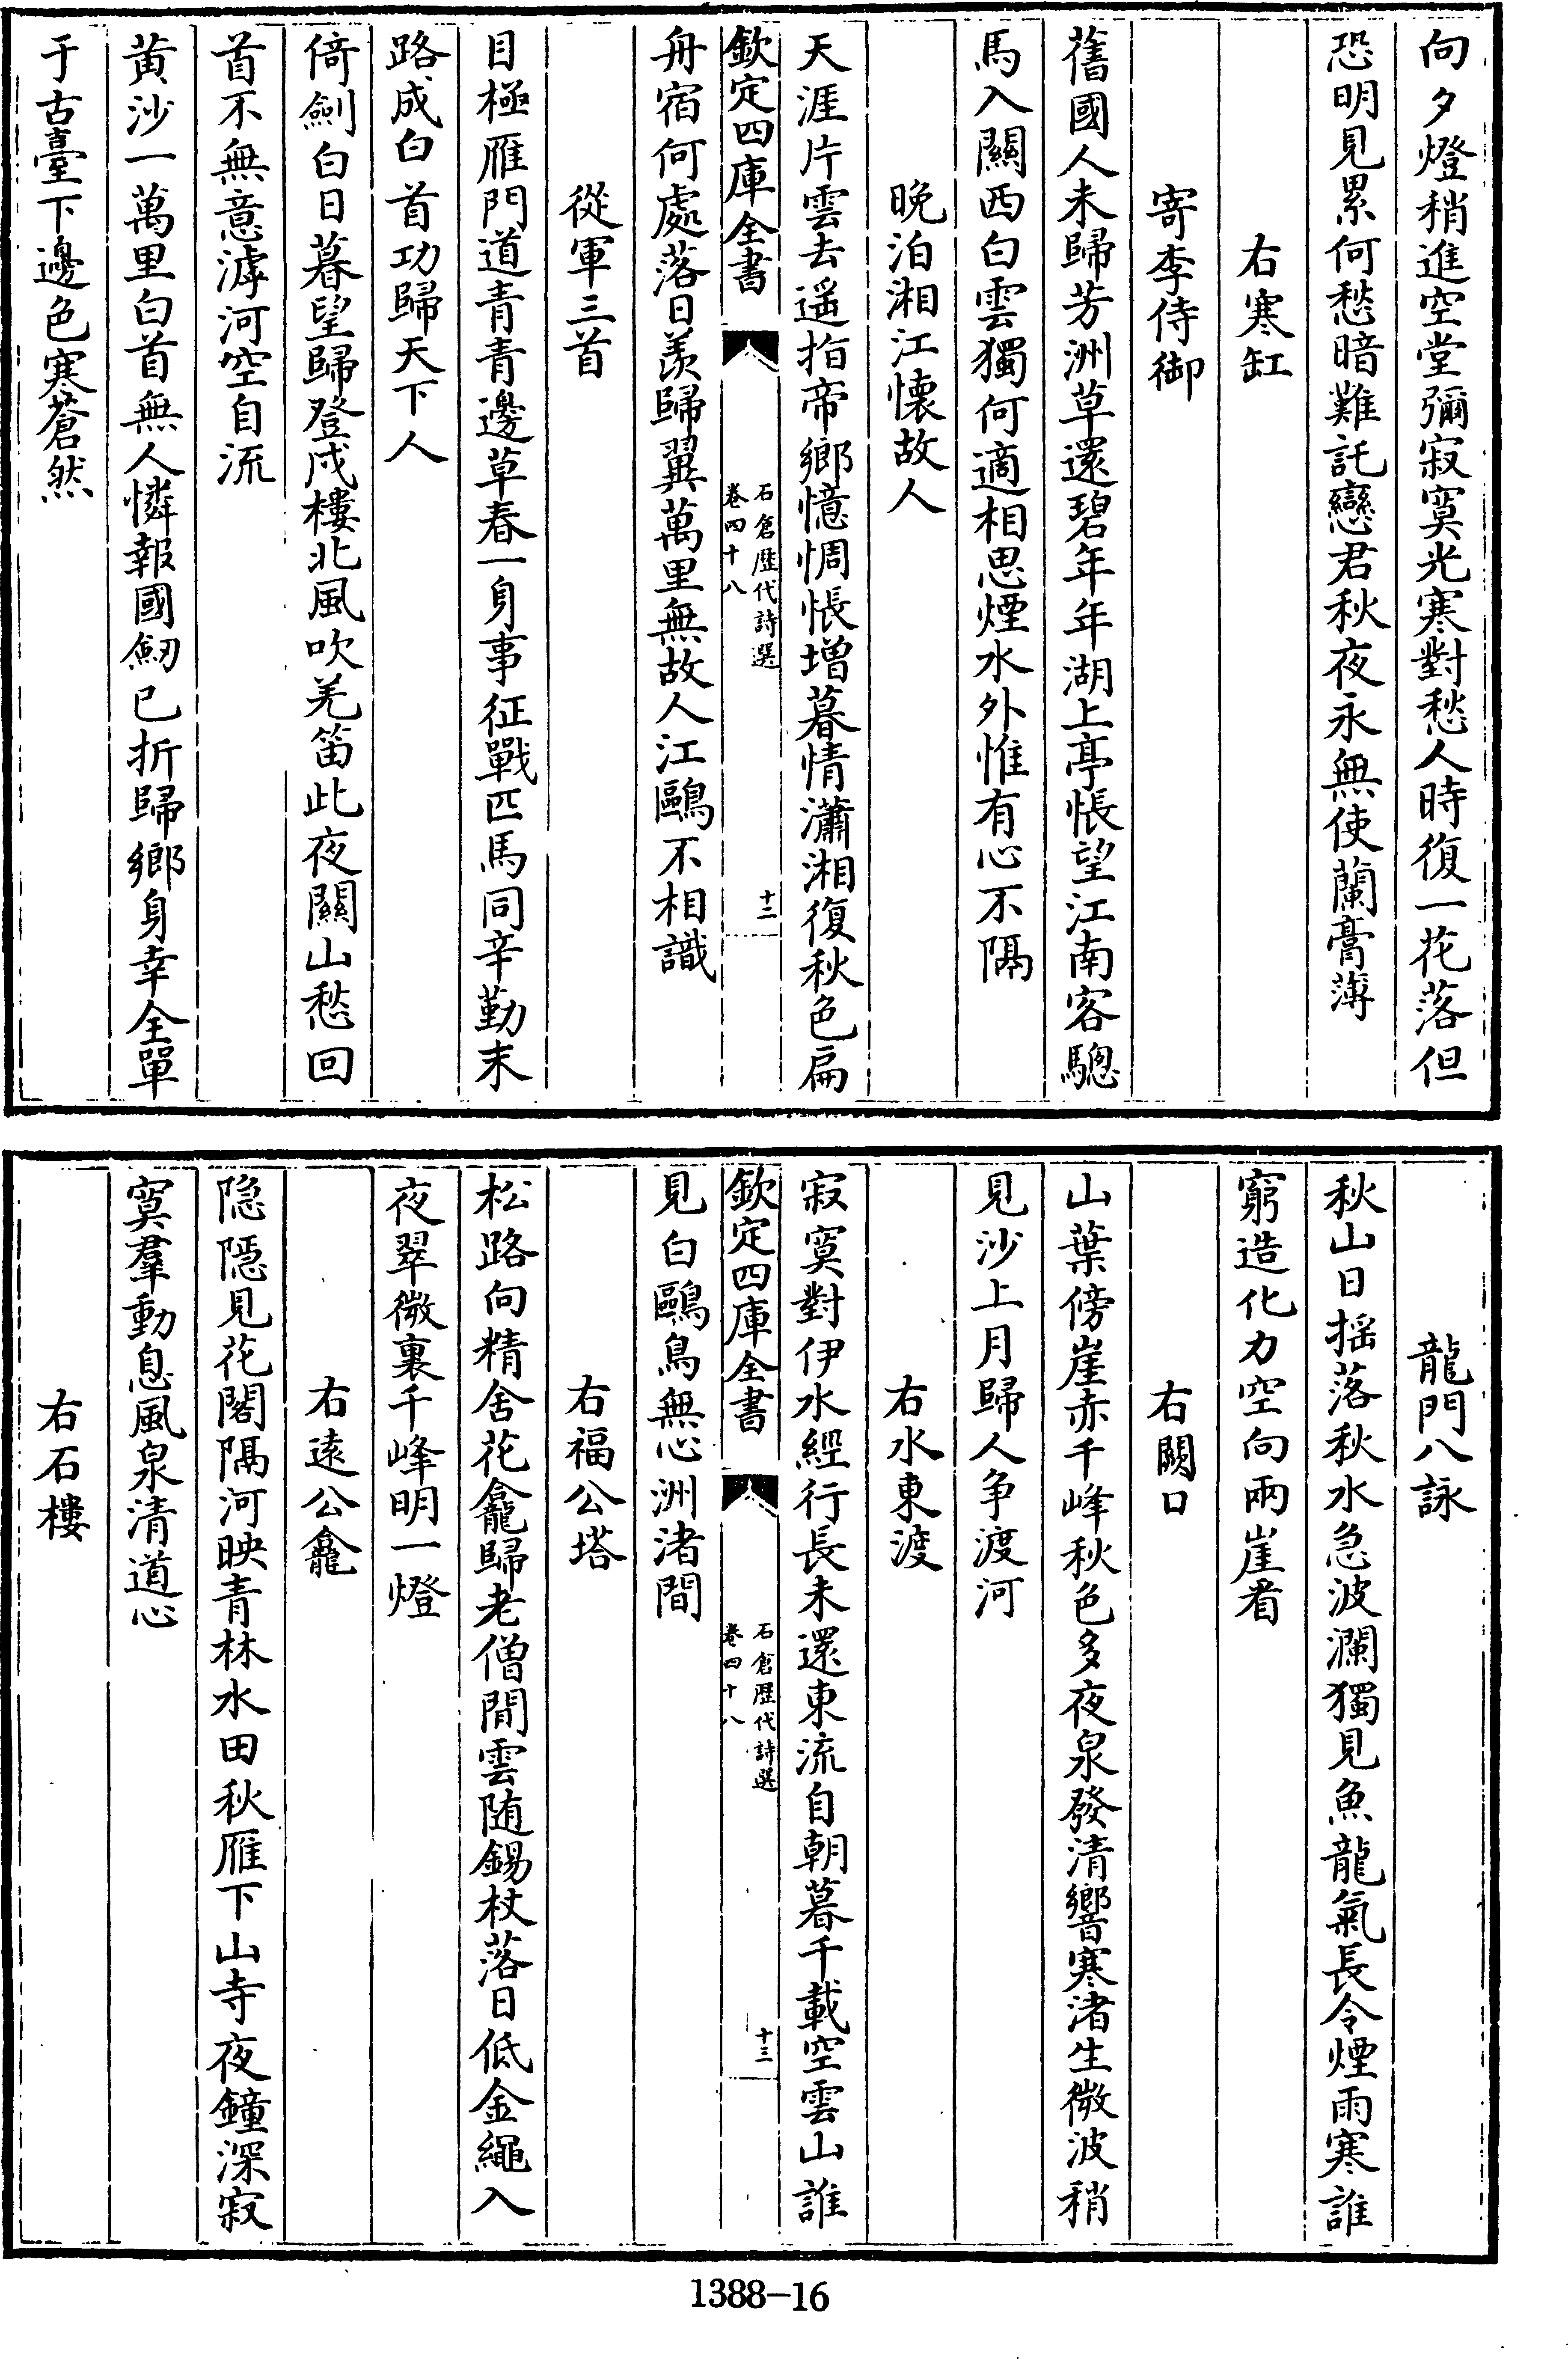 向夕燈稍進空堂彌寂寞光寒對愁人時復一花落但
恐明見累何愁暗難託戀君秋夜永無使蘭膏薄
右寒缸
寄李侍御
舊國人未歸芳洲草還碧年年湖上亭悵望江南客驄
馬入關西白雲獨何適相思煙水外惟有心不隔
晚泊湘江懷故人
天涯片雲去遥指帝鄉憶惆悵增暮情瀟湘復秋色扁
欽定四庫全書
石倉歷代詩選
卷四十八
十二
舟宿何處落日羨歸翼萬里無故人江鷗不相識
從軍三首
目極雁門道青青邊草春一身事征戰匹馬同辛勤末
路成白首功歸天下人
倚劍白日暮望歸登戍樓北風吹羌笛此夜關山愁回
首不無意滹河空自流
黃沙一萬里白首無人憐報國劒已折歸鄉身幸全單
于古臺下邊色寒蒼然
龍門八詠
秋山日摇落秋水急波瀾獨見魚龍氣長令煙雨寒誰
窮造化力空向兩崖看
右闕口
山葉傍崖赤千峰秋色多夜泉發清響寒渚生微波稍
見沙上月歸人争渡河
右水東渡
寂寞對伊水經行長未還東流自朝暮千載空雲山誰
欽定四庫全書
石倉歷代詩選
卷四十八
十三
見白鷗鳥無心洲渚間
右福公塔
松路向精舍花龕歸老僧閒雲随錫杖落日低金繩入
夜翠微裏千峰明一燈
右遠公龕
隐隱見花閣隔河映青林水田秋雁下山寺夜鐘深寂
寞羣動息風泉清道心
右石樓
1388-16